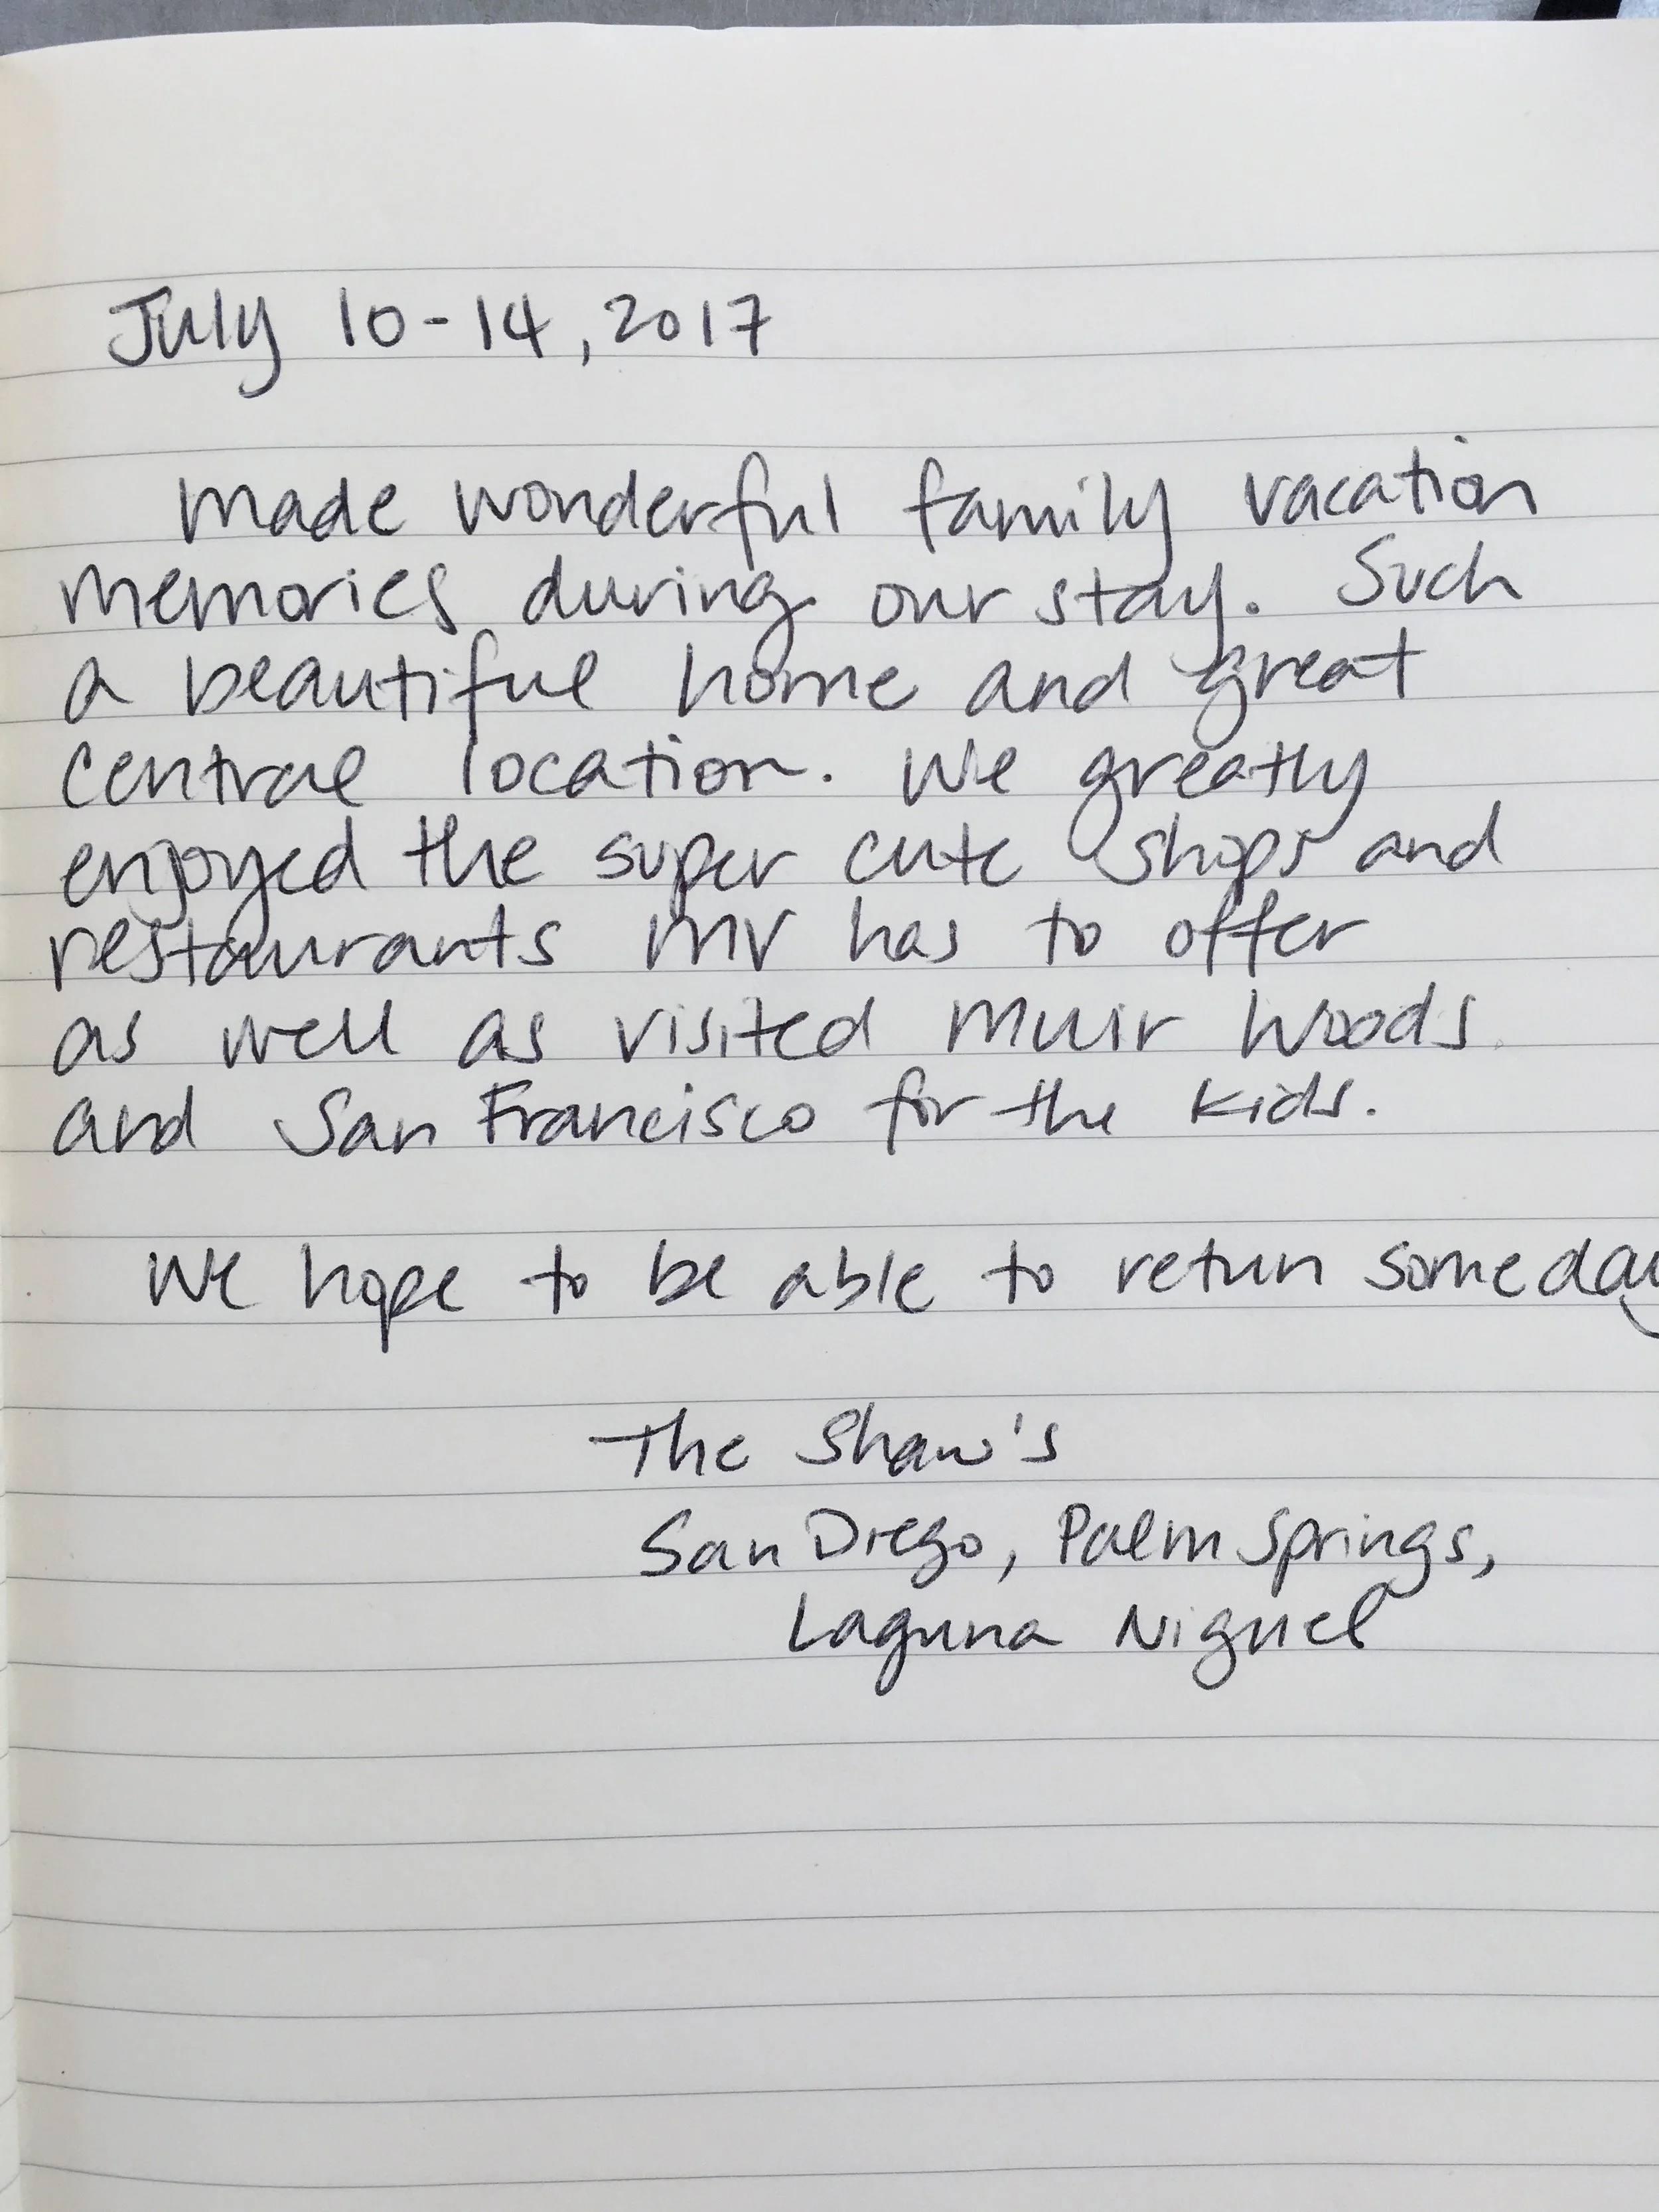 July 10-14, 2017
Made wonderful family vacation
memories during our stay. Such
a beautiful home and great
central location. We greatly
enjoyed the super cute shops and
restaurants MV has to offer
as well as visited Muir Woods
and San Francisco for the kids.
We hope to be able to retun someday
The Shaw's
San Diego, Palm Springs,
Laguna Niguel